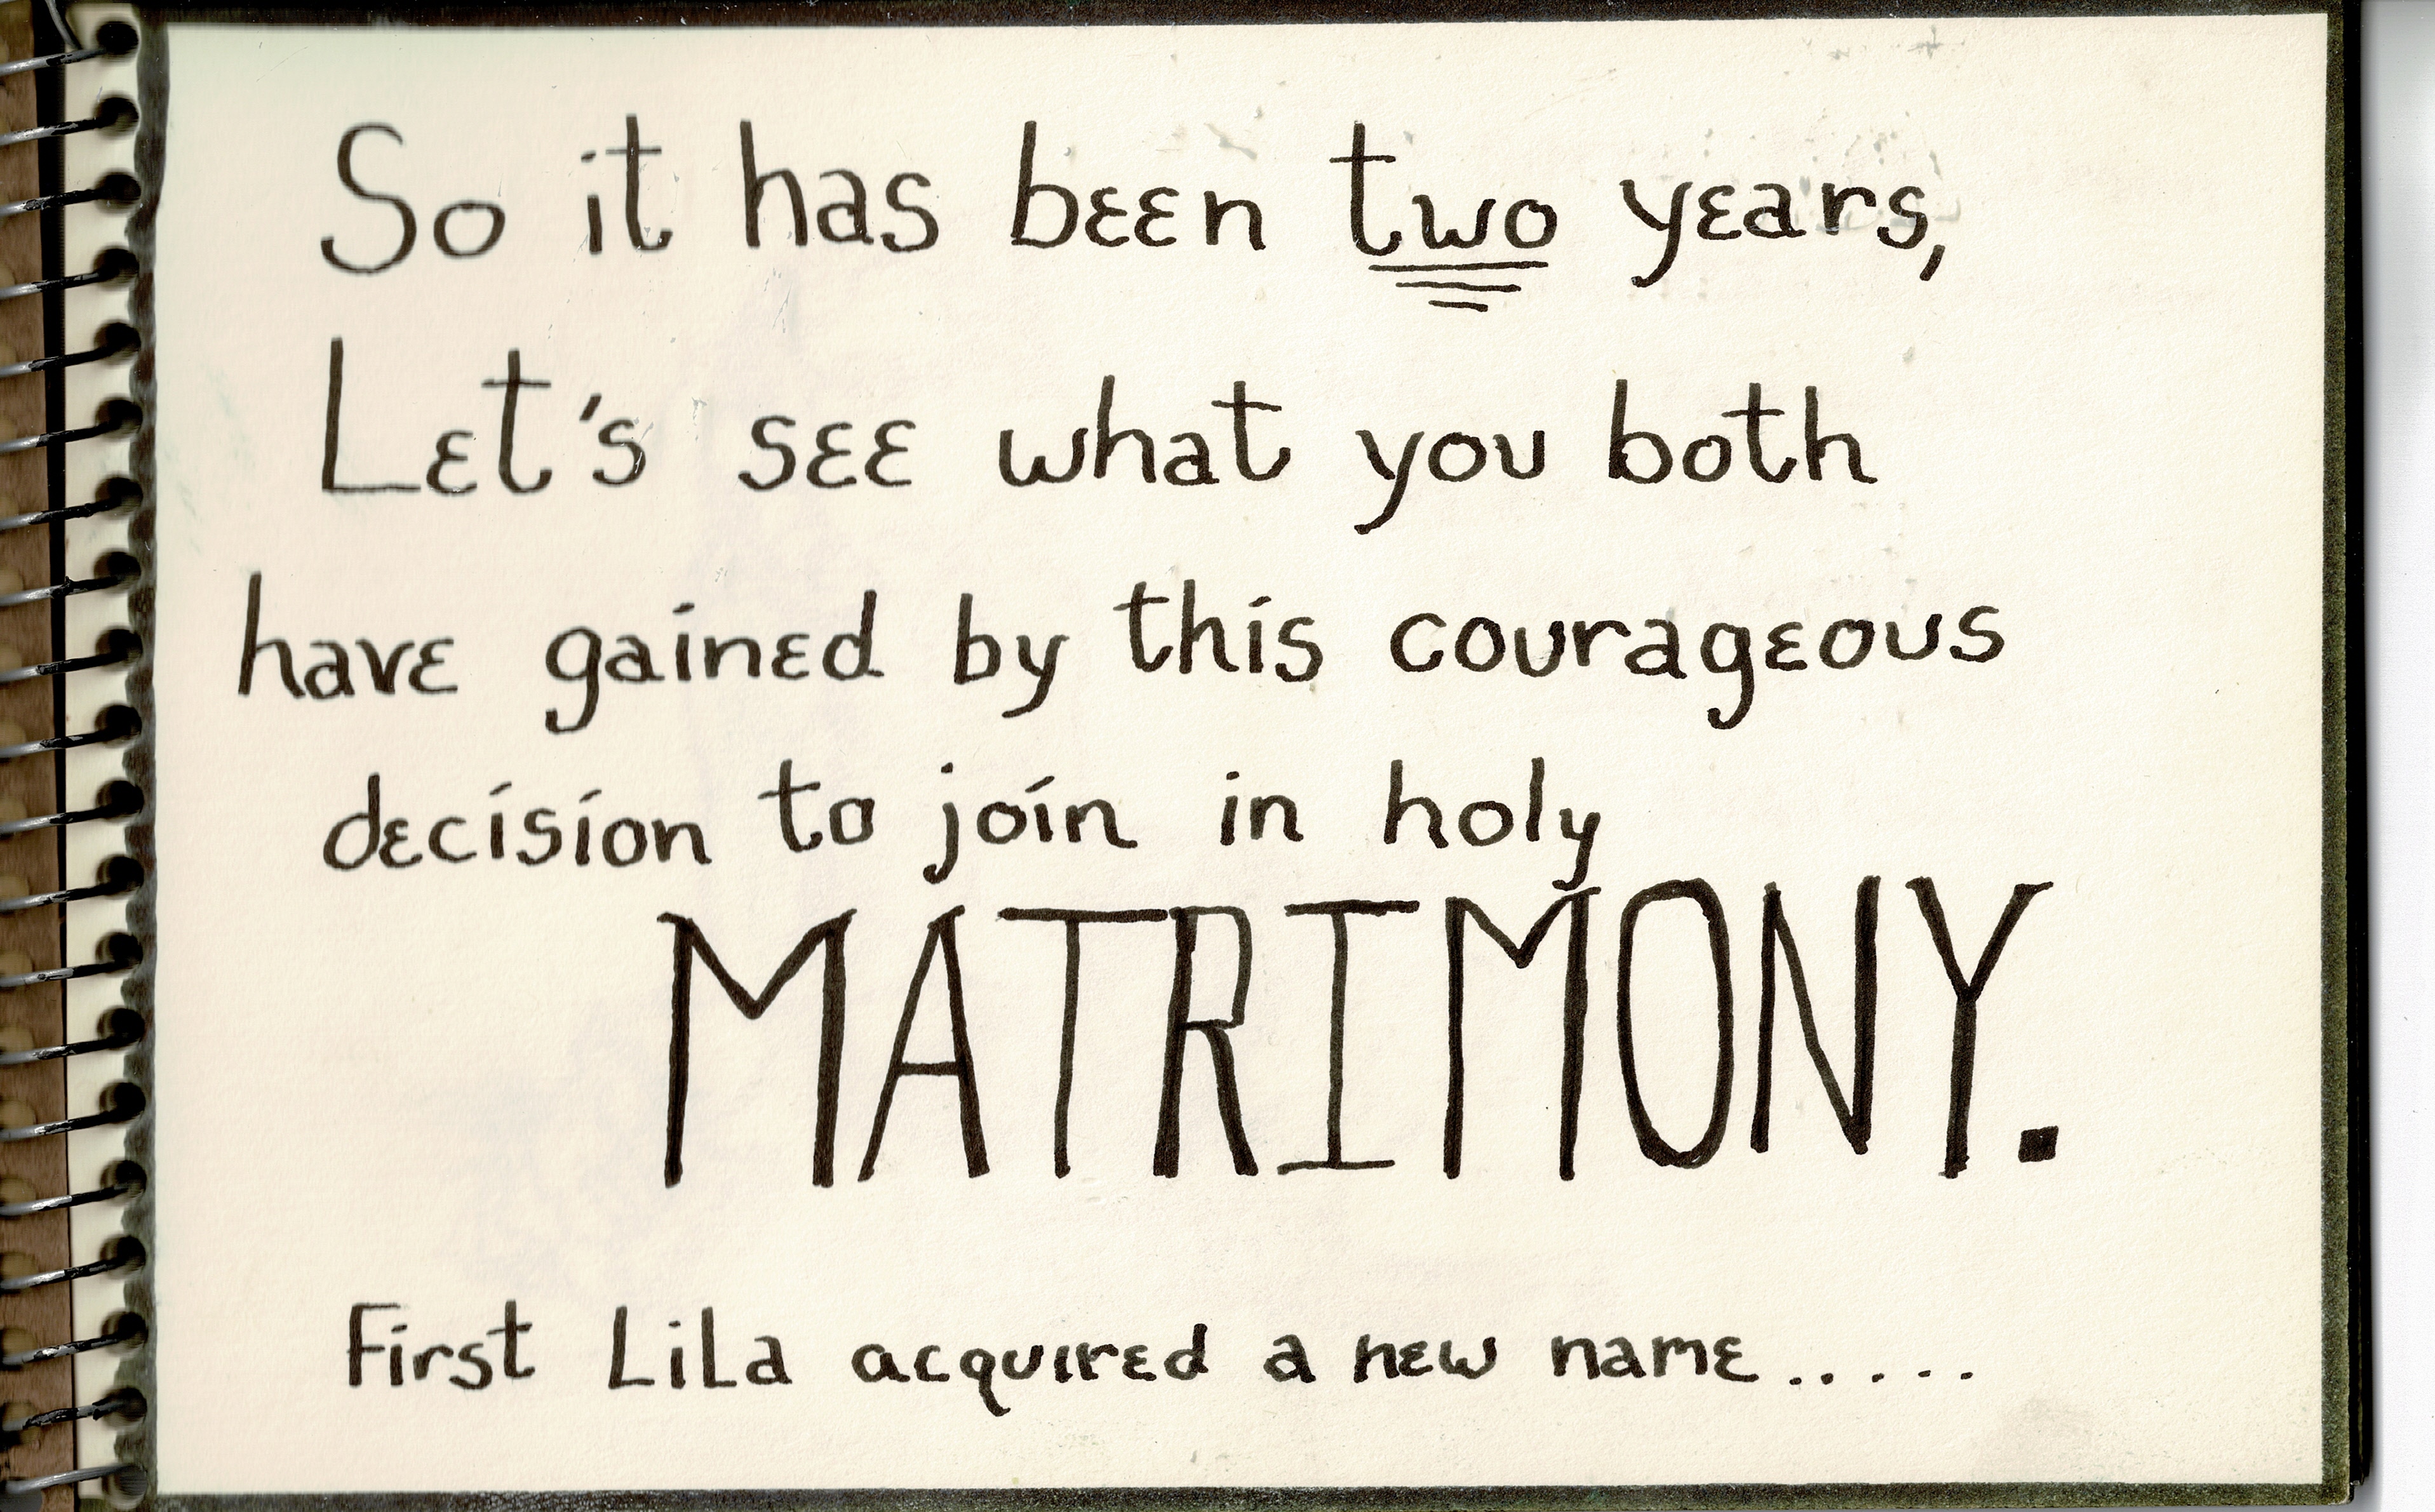 So it has been two years,
Let's see what you both
have gained by this courageous
decision to join in holy
MATRIMONY.
First Lila acquired a new name.....